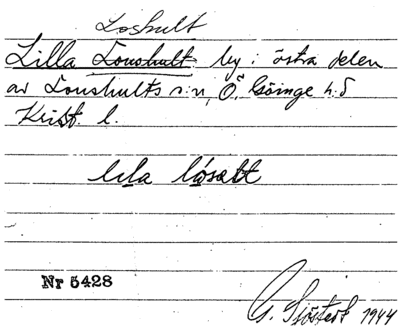 Loshult
Lilla Loushult by i östra delen
av Loushults s:n, Ö. Göinge h:d
Krist. l.
lila lósælt
Nr 5428
G. Sjöstedt 1944